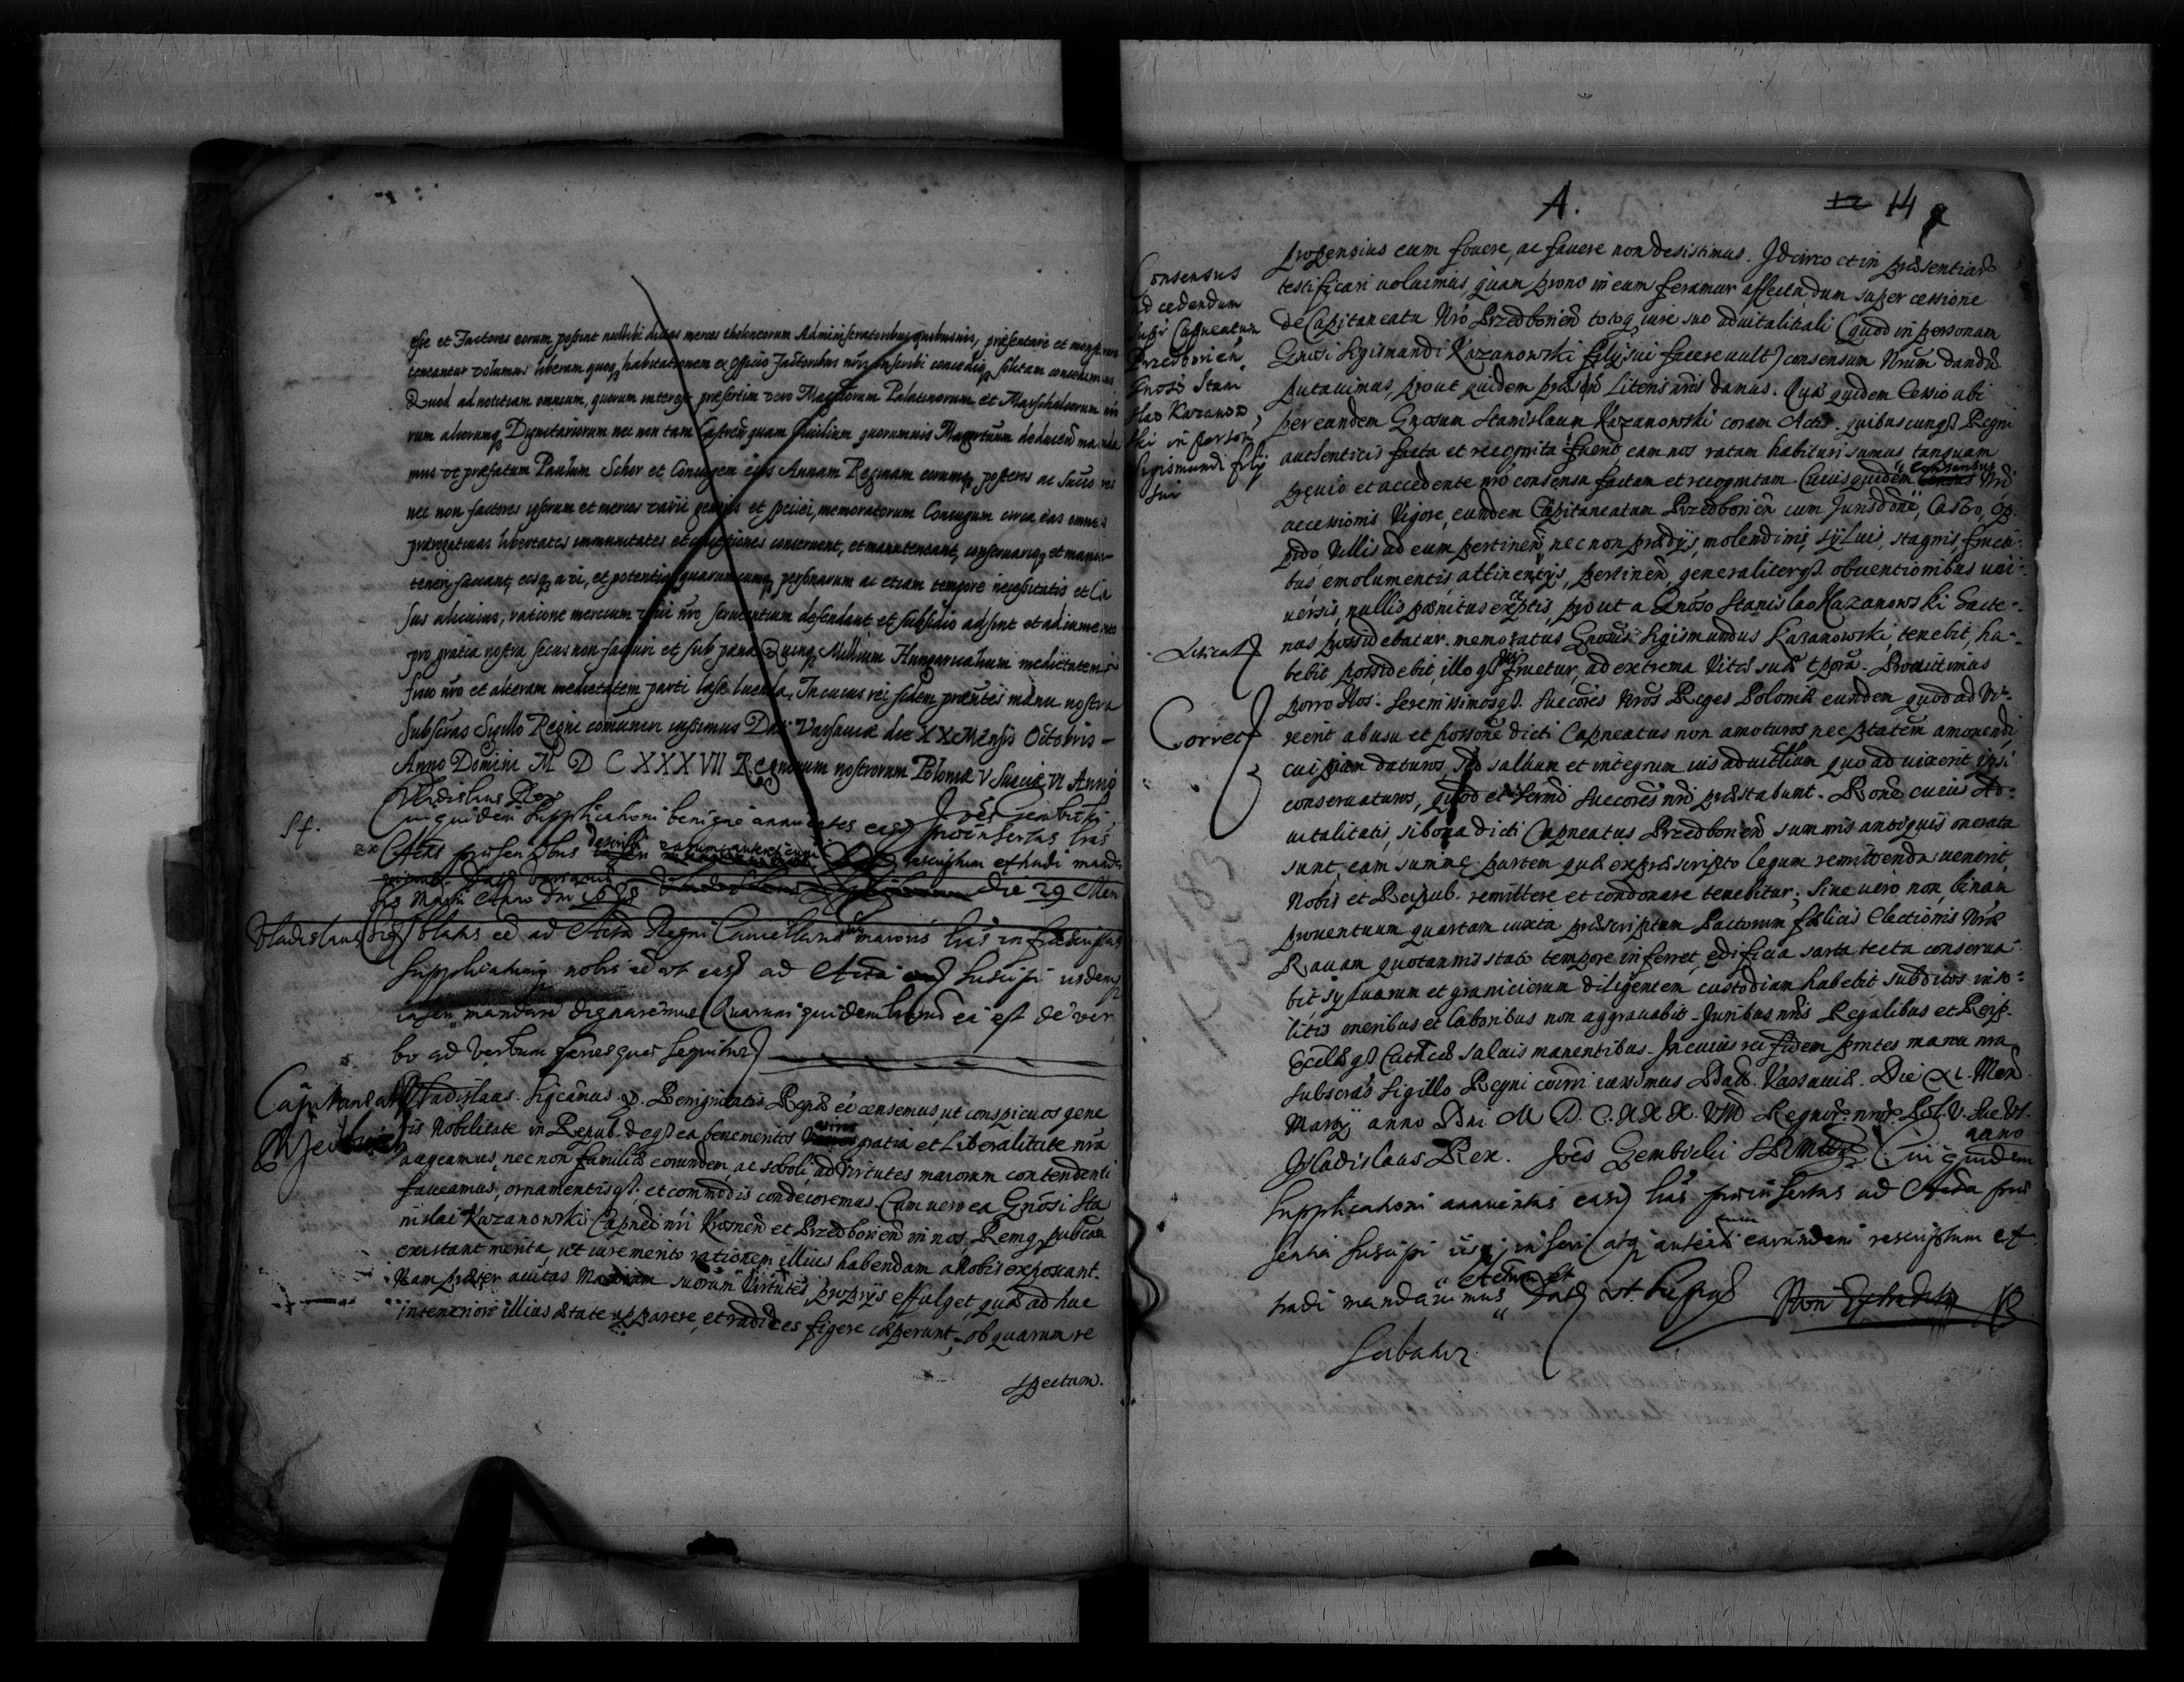 esse et Factores eorum possint nullibi dictas merces theloneorum Administratoribus quibusuis, praesentare et
teneantur volumus liberam quoq habitationem ex officio Factoribus conscribi concediq solitam concedimus
Quod ad notitiam omnium, quorum interest praesertim vero Magcorum Palatinorum et Marschalcorum
rum aliorumq Dignitariorum nec non tam Castren quam Ciuilium quorumuis Magrtuum deducen manda
mus ut praefatum Paulum Schor et Coniugem eius Annam Reginam eorumq posteros ac Succo res
nec non factores ipsorum et merces varii generis et speciei, memoratorum Coniugum circa eas omnes
praerogatiuas libertates immunitates et exemptiones conseruent, et manuteneant, conseruariq et manu-
teneri faciant, eosq a vi, et potentia quarumcumq personarum ac etiam tempore necessitatis et Ca
sus alicuius, ratione mercium usui nro seruientium defendant et subsidio adsint et adiumento
pro gratia nostra secus non facturi et sub paena Quinq Millium Hungaricalium medietatem
fisco nro et alteram medietatem parti laesae luenda, In cuius rei fidem praesentes manu nostra
Subscras Sigillo Regni comuneri iussimus Dat: Varsauiae die XX Mensis Octobris -
Anno Domini M D C XXXVII Regnorum nostrorum Poloniae V Sueciae VI Anno
Vladislaus Rex
Ioes Gembicki
Cui quidem supplicationi benigne annuentes easq prointertas lras
Actis praesentibus describi earum autenticum rescriptum extradi manda
die 29 Men
sis Martii Anno Dni 1638
Vladislaus Sig Oblatis ad Acta Regni Cancellariae maioris lras infrascriptas
supplicatumq nobis ut easq ad Acta suscipi iisdemq
inseri mandare dignaremus Quarum quidem lrarum ea est de ver
bo ad verbum series quae sequitur
Capitaneat
Vladislaus. Sigcamus. &. Benignitatis Regiae ee censemus, ut conspicuos gene
ris Nobilitate in Repub. deqs ea benemeritos viros gratia et Liberalitate nra
augeamus, nec non familiae eorundem, ac soboli, ad virtutes maiorum contendenti
faueamus, ornamentisqs. et commodis condecoremus. Cum uero ea Gnosi Sta
nislai Kazanowski Capnei nri Krosnen et Przedborien in nos, Remq pubcam
exstant merita, ut iure merito rationem illius habendam a Nobis exposcant.
Nam praeter auitas Maiorum suorum Virtutes, proprys effulget, quae ad huc
in teneriori illius aetate apparere, et radices figere caeperunt, ob quarum re
spectum.
A.
12 14
Consensus
ad cedendum
supr Capneatum
Przedborien
Gnoso Stani
slao Kazanow
ski in person
Sigismundi filij
sui
propensius eum fouere, ac fauere non desistimus. Idcirco et in praesentiar
testificari uoluimus, quam prono in eum feramur affectu, dum super cessione
de Capitaneatu Nro Przedborien totoq iure suo aduitalitiali (quod in personam
Gnosi Sigismundi Kazanowski filij sui facere uult) consensum Nrum dandu
putauimus, prout quidem praesn Literis nris damus. Quae quidem Cessio ubi
per eundem Gnosum Stanislaum Kazanowski coram Actis quibuscunqs Regni
authenticis facta et recognita fuerit eam nos ratam habituri sumus, tanquam
praeuio et accedente nro consensu factam et recognitam Cuius quidem consensus Nri
accessionis Vigore, eundem Capitaneatum Przedborien cum Jurisdone, Castro, op
pido, Villis ad eum pertinen, nec non pradijs, molendinis, syluis, stagnis, fructi-
bus, emolumentis, attinentijs, pertinen, generaliterqs. obuentionibus uni-
uersis, nullis paenitus exceptis, prout a Gnoso Stanislao Kazanowski hacte-
nus possidebatur. memoratus Gnosus Sigismundus Kazanowski, tenebit, ha-
bebit, possidebit, illoqs fruetur, ad extrema Vitae suae tpora. Promittimus
porro Nos. Serenissimosqs. Succores Nros Reges Poloniae eundem quoad Vi-
xerit ab usu et possone dicti Capneatus non amoturos nec ptatem amouendi
cuipiam daturos, sed saluum et integrum ius aduitlium quo ad uixerit ipsi
conseruaturos, quod et Sermi Succores nri praestabunt. Rone cuius Ad-
uitalitatis, si bona dicti Capneatus Przedborien summis antiquis onerata
sunt, eam summae partem quae ex praescripto legum remittenda uenerit,
Nobis et Reipub. remittere et condonare tenebitur; Siue uero non, binam
prouentuum quartam iuxta praescriptum Pactorum faelicis Electionis Nrae
Rauam quotannis stato tempore inferret, aedificia sarta tecta conserua-
bit, syluarum et granicierum diligentem custodiam habebit subditos inso-
litis oneribus et laboribus non aggrauabit. Juribus nris Regalibus et Reip.
Eccleaeqs Catholcae saluis manentibus. In cuius rei fidem prntes manu nra
subscras Sigillo Regni coiri iussimus Datt. Varsauiae. Die XI. Men
Martij anno Dni M. D. C. XXX. VIII. Regnor. nror. Pol. V. Sue VI.
anno
Vladislaus Rex. Ioes Gembicki Cui quidem
supplicationi annuentes easq lras proinsertas ad Acta prae
sentia suscipi iisq inseri atq autent earundem rescriptum ex
tradi mandauimus Datt ut supra
Correct